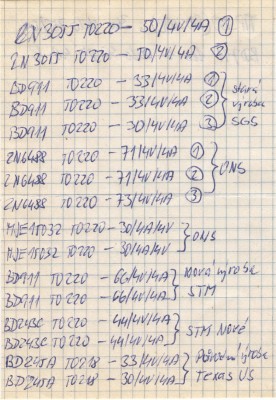 2N3055 TO220 – 50/4V/4A ①
2N3055 TO220 – 50/4V/4A ②
BD911 TO220 – 33/4V/4A ①
BD911 TO220 – 33/4V/4A ② stará výroba
BD911 TO220 – 30/4V/4A ③ SGS
2N6488 TO220 – 71/4V/4A ①
2N6488 TO220 – 71/4V/4A ② ONS
2N6488 TO220 – 73/4V/4A ③
MJE15032 TO220 – 30/4A/4V ONS
MJE15032 TO220 – 30/4A/4V
BD911 TO220 – 66/4V/4A Nová výroba
BD911 TO220 – 66/4V/4A STM
BD243C TO220 – 44/4V/4A STM Nové
BD243C TO220 – 44/4V/4A
BD245A TO218 – 33/4V/4A Původní výroba
BD245A TO218 – 30/4V/4A Texas US